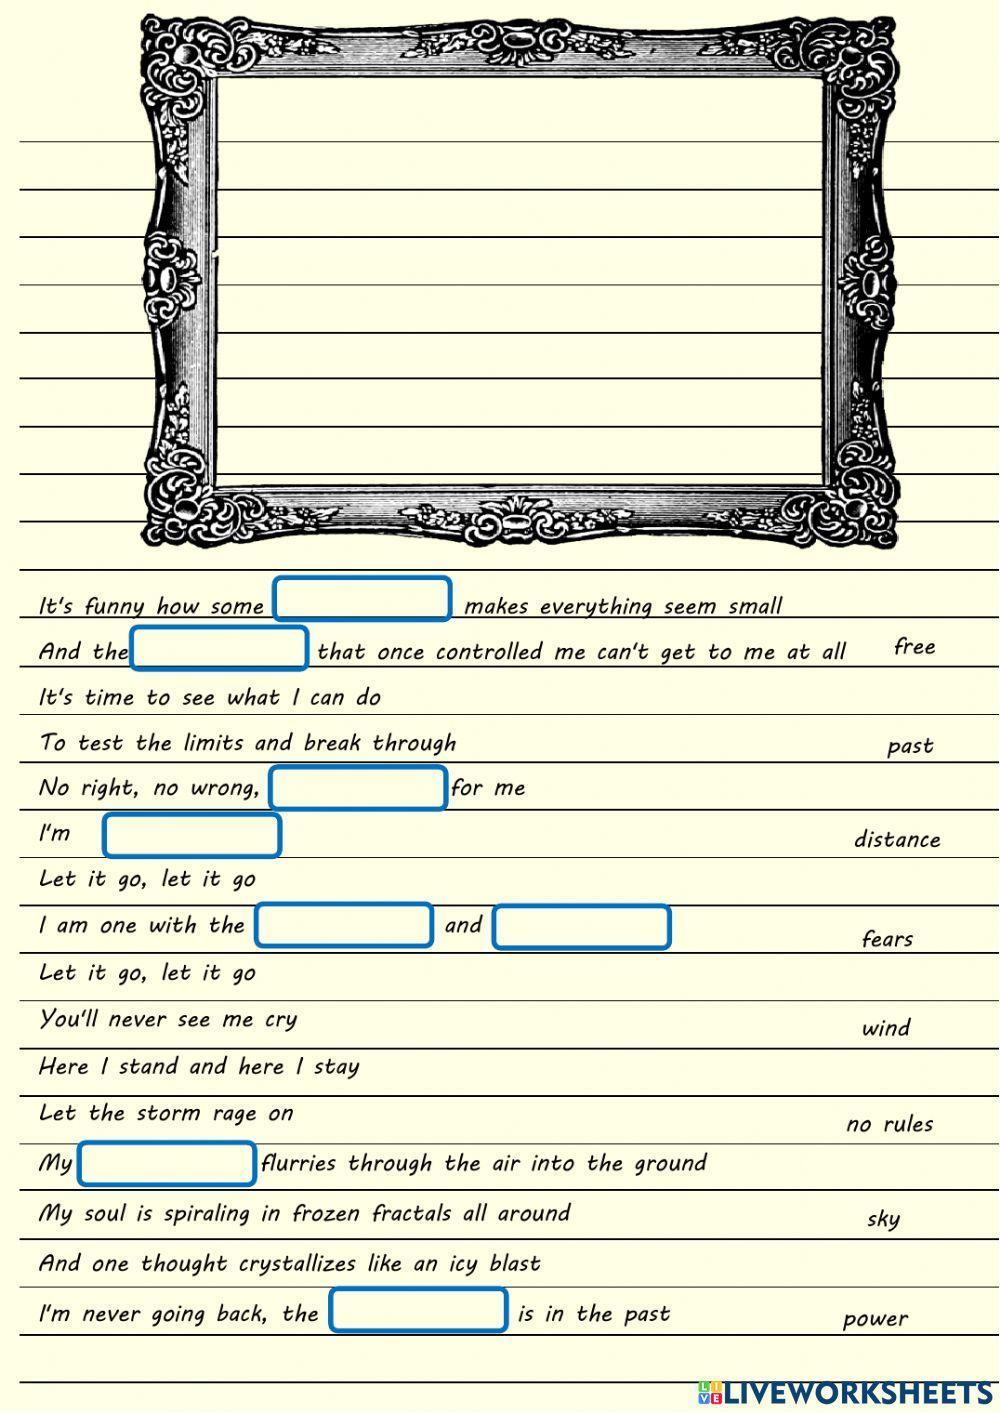 It's funny how some makes everything seem small
And the that once controlled me can't get to me at all
free
It's time to see what I can do
To test the limits and break through
past
No right, no wrong, for me
I'm
distance
Let it go, let it go
I am one with the and
fears
Let it go, let it go
You'll never see me cry
wind
Here I stand and here I stay
Let the storm rage on
no rules
My flurries through the air into the ground
My soul is spiraling in frozen fractals all around
sky
And one thought crystallizes like an icy blast
I'm never going back, the is in the past
power
LIVE LIVEWORKSHEETS